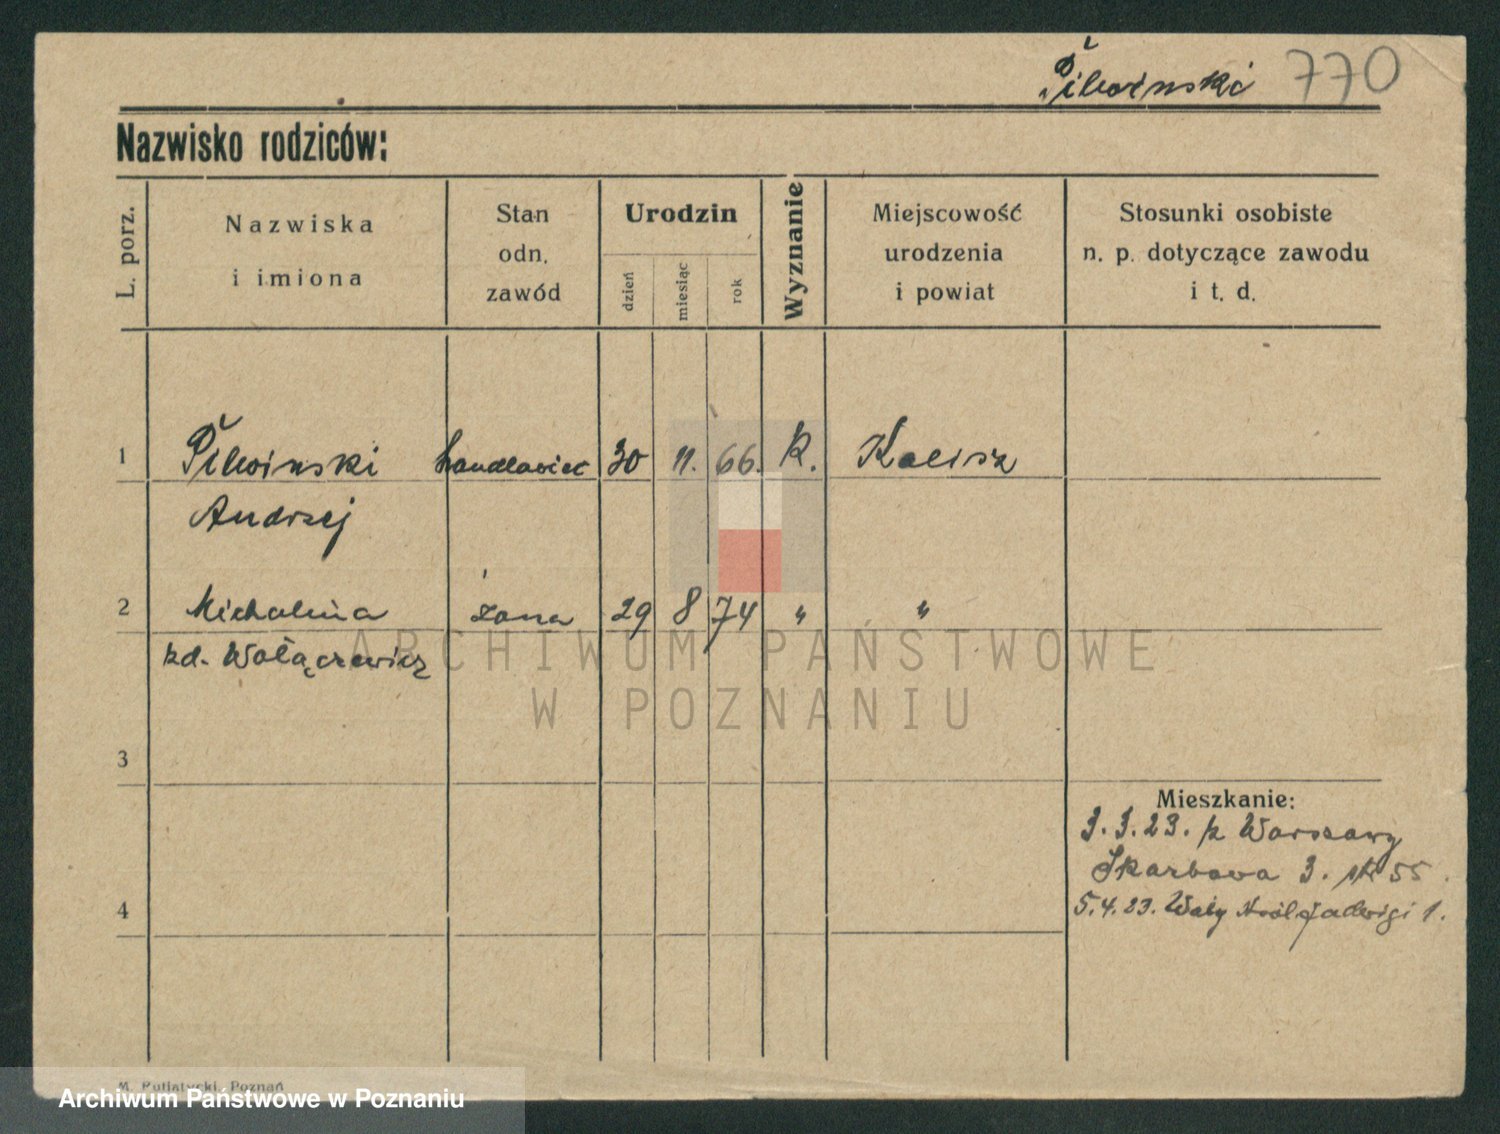 Pilwinski 770
Nazwisko rodziców:
L. porz.
Nazwiska
i imiona
Stan
odn.
zawód
Urodzin
dzień
miesiąc
rok
Wyznanie
Miejscowość
urodzenia
i powiat
Stosunki osobiste
n. p. dotyczące zawodu
i t. d.
1 Pilwinski handlowiec 30 11. 66. k. Kalisz
Andrzej
2 Michalina żona 29 8 74 " "
zd. Wołączewicz
ARCHIWUM PAŃSTWOWE
W POZNANIU
3
Mieszkanie:
3.3.23. z Warszawy
Skarbowa 3. 55.
4
5.4.23. Wały Król. Jadwigi 1.
M. Putiatycki, Poznań
Archiwum Państwowe w Poznaniu